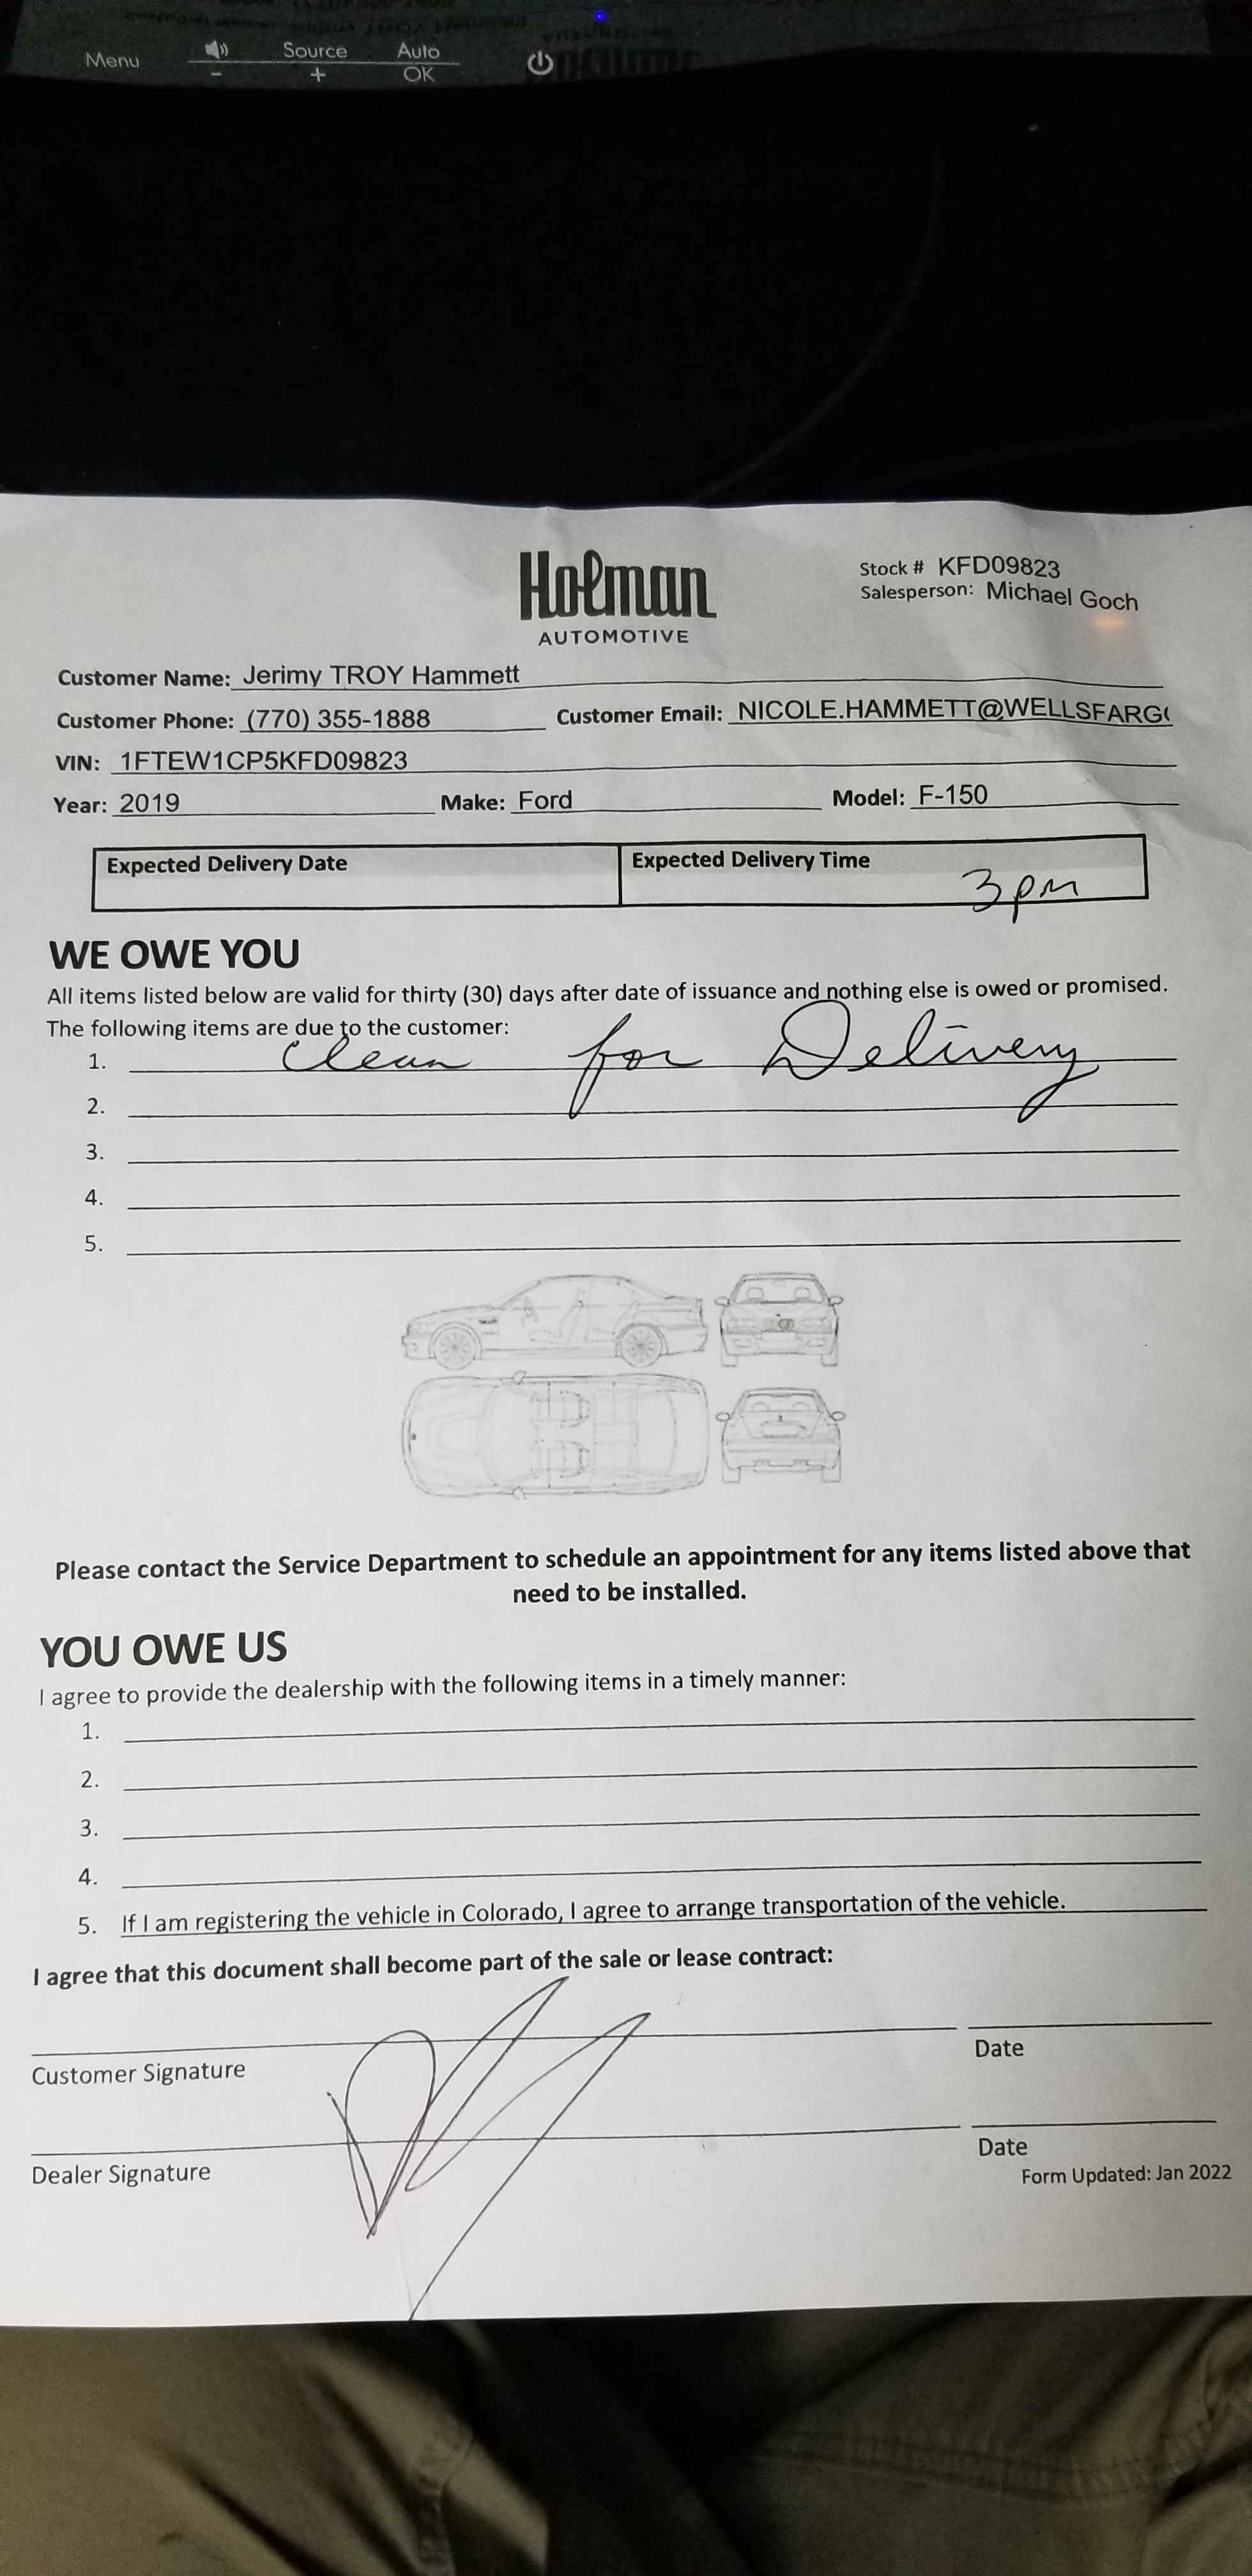 Menu
Source
Auto
-
+
OK
Holman
AUTOMOTIVE
Stock # KFD09823
Salesperson: Michael Goch
Customer Name: Jerimy TROY Hammett
Customer Phone: (770) 355-1888 Customer Email: NICOLE.HAMMETT@WELLSFARG
VIN: 1FTEW1CP5KFD09823
Year: 2019 Make: Ford Model: F-150
Expected Delivery Date Expected Delivery Time
3 pm
WE OWE YOU
All items listed below are valid for thirty (30) days after date of issuance and nothing else is owed or promised.
The following items are due to the customer:
1. Clean for Delivery
2.
3.
4.
5.
Please contact the Service Department to schedule an appointment for any items listed above that
need to be installed.
YOU OWE US
I agree to provide the dealership with the following items in a timely manner:
1.
2.
3.
4.
5. If I am registering the vehicle in Colorado, I agree to arrange transportation of the vehicle.
I agree that this document shall become part of the sale or lease contract:
Customer Signature Date
Dealer Signature Date
Form Updated: Jan 2022